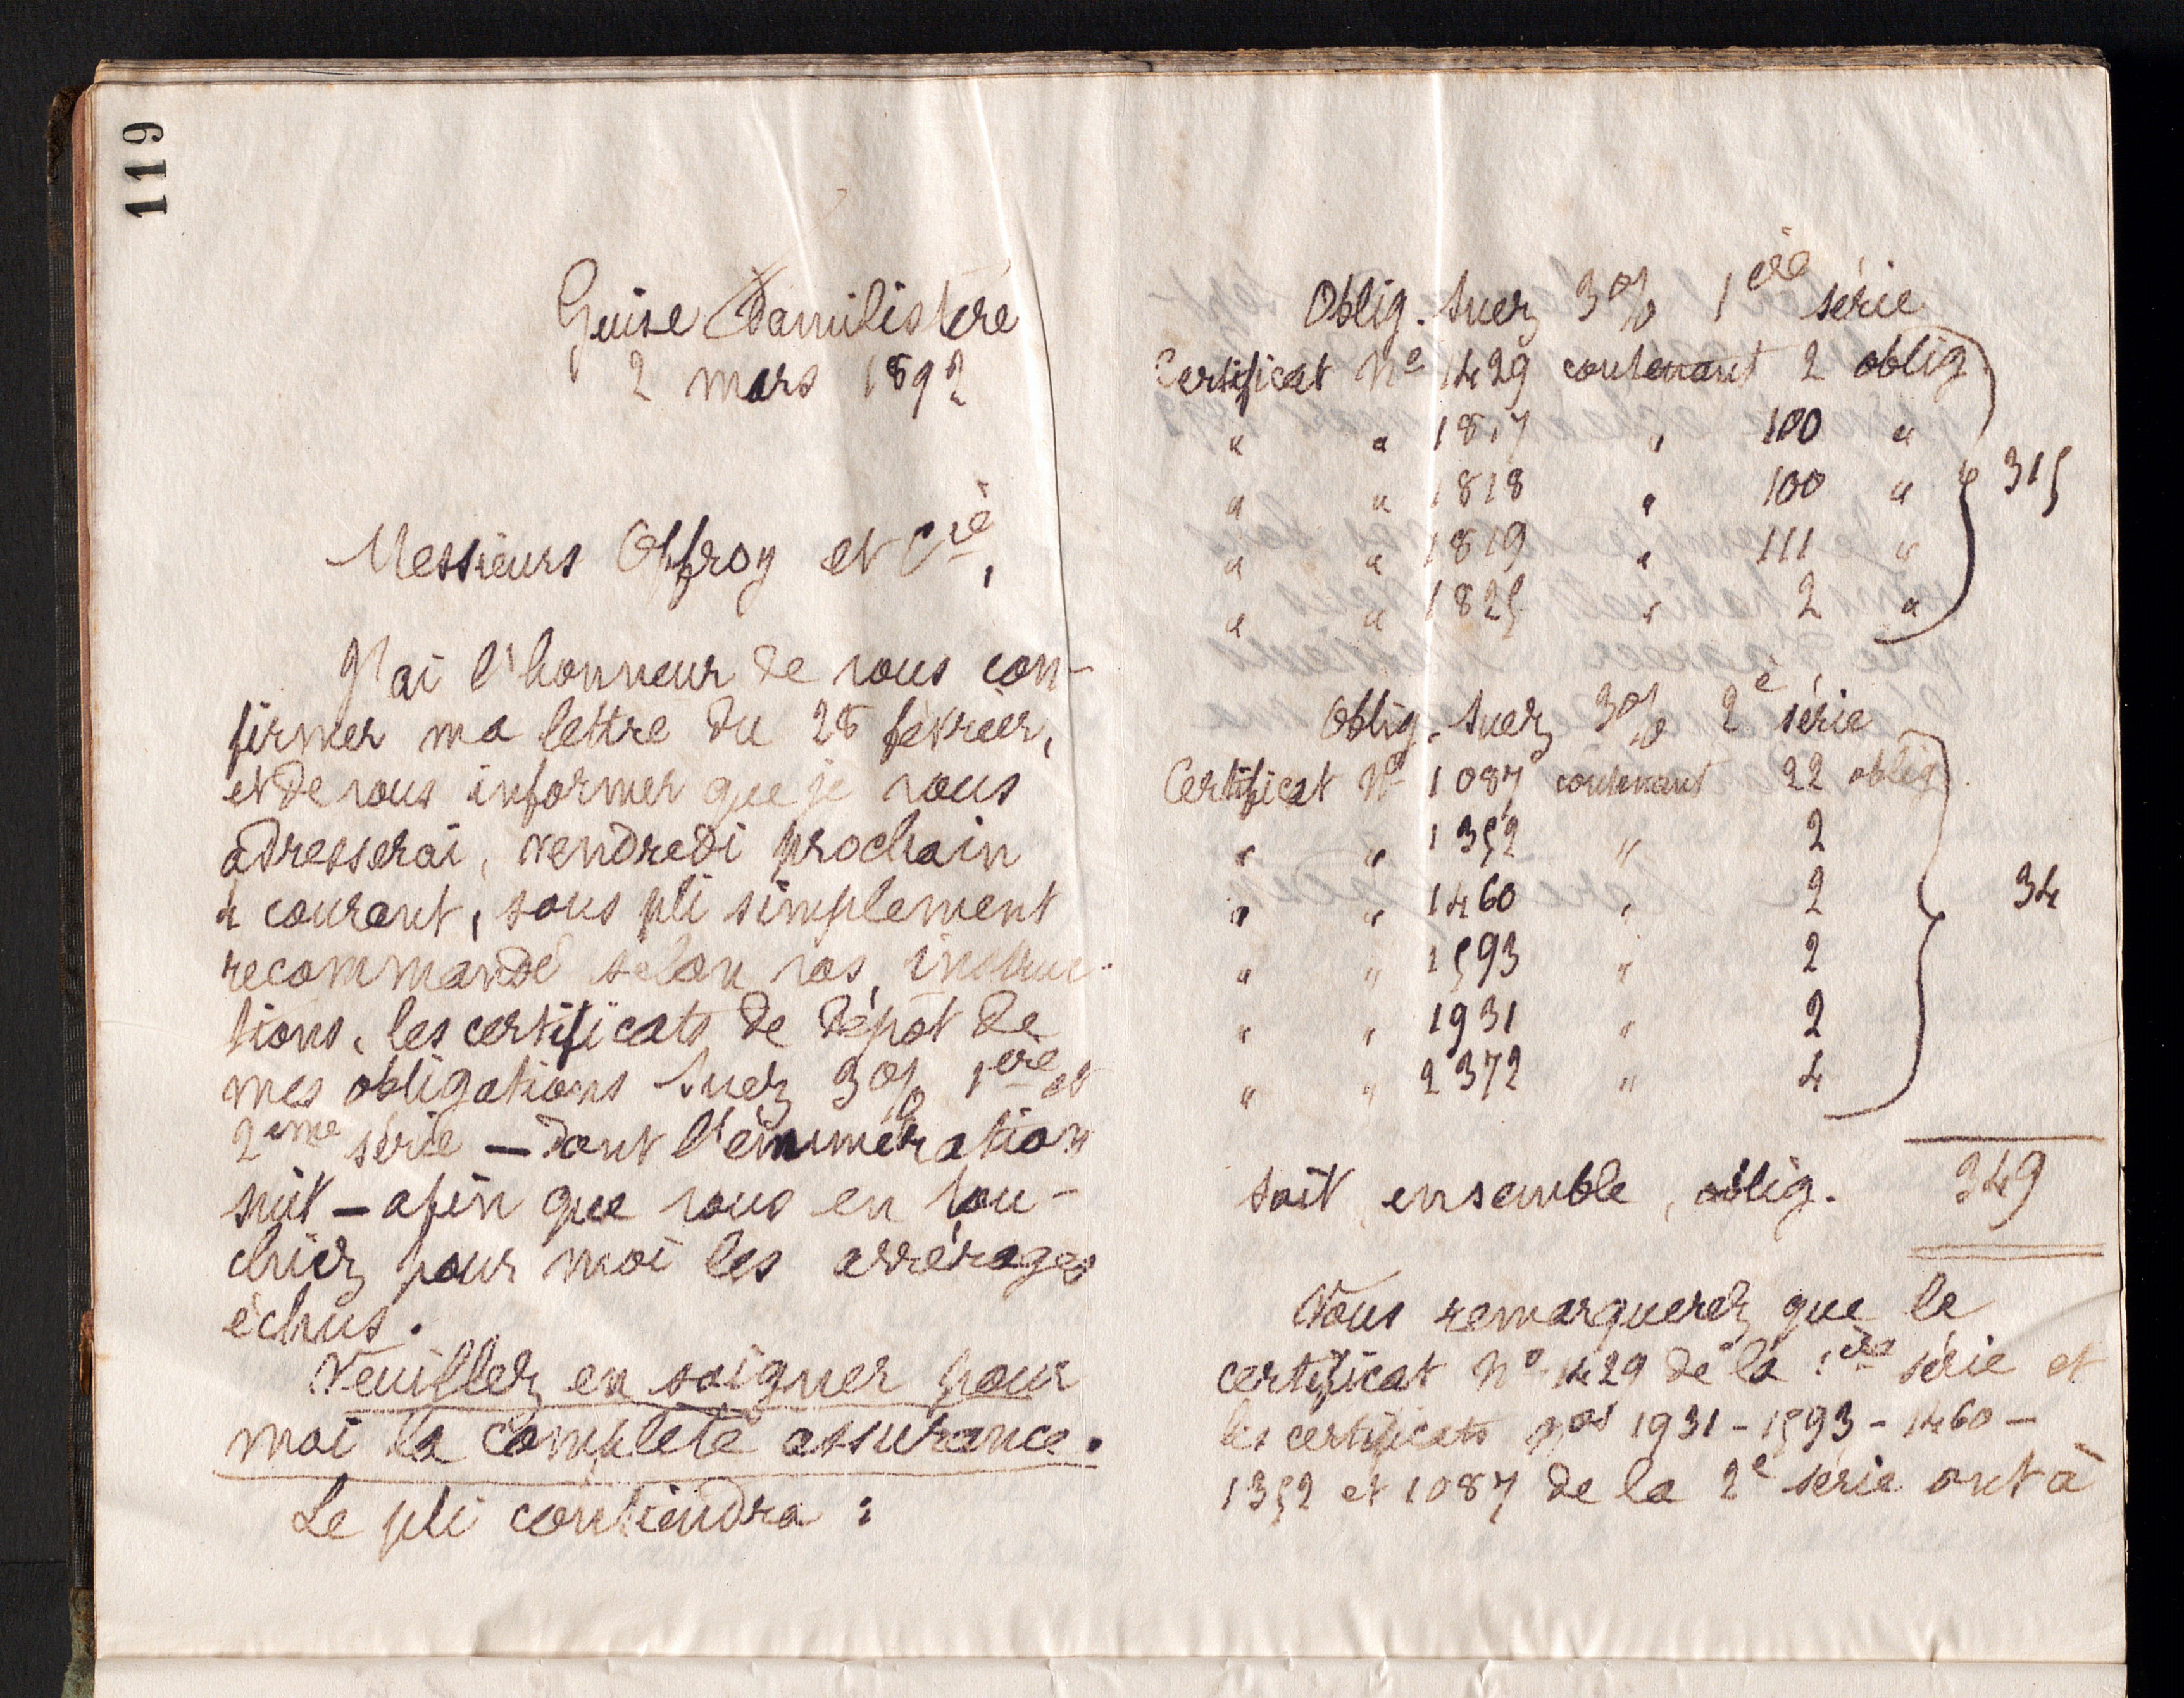 119
Guise Familistère
2 mars 1892
Messieurs Offroy et Cie,
J'ai l'honneur de vous con-
firmer ma lettre du 28 février,
et de vous informer que je vous
adresserai, vendredi prochain
4 courant, sous pli simplement
recommandé selon vos instruc-
tions, les certificats de dépôt de
mes obligations Suez 3% 1ère et
2ème série — dont l'énumération
suit — afin que vous en tou-
chiez pour moi les arrérages
échus.
Veuillez en soigner pour
moi la complète assurance.
Le pli contiendra :
Oblig. Suez 3% 1ère série
Certificat No 1429 contenant 2 oblig.
" " 1817 " 100 "
" " 1818 " 100 " 315
" " 1819 " 111 "
" " 1825 " 2 "
Oblig. Suez 3% 2e série
Certificat No 1087 contenant 22 oblig.
" " 1352 " 2
" " 1460 " 2 34
" " 1593 " 2
" " 1931 " 2
" " 2372 " 4
Soit ensemble, oblig. 349
Vous remarquerez que le
certificat No 1429 de la 1ère série et
les certificats nos 1931 - 1593 - 1460 -
1352 et 1087 de la 2e série ont à